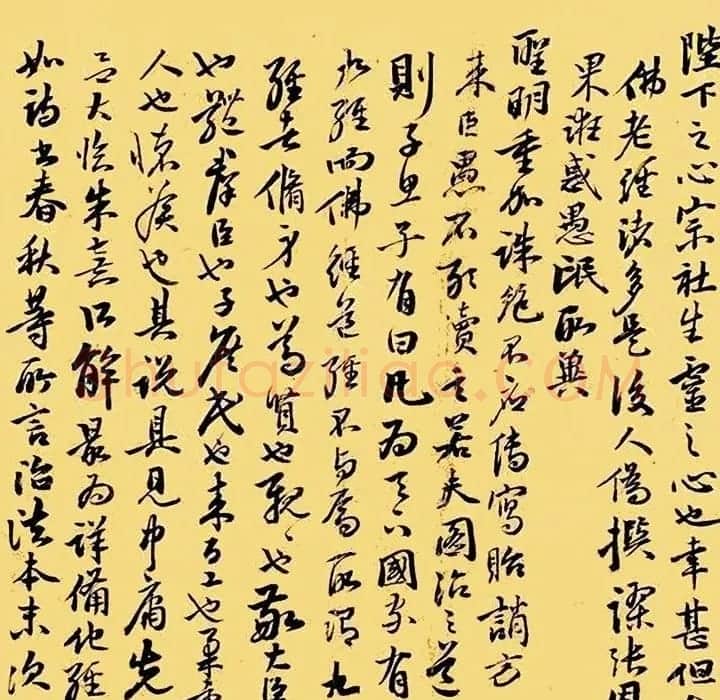 陛下之心宗社生靈之心也幸甚但
佛老經諸多是後人偽撰謬張因
果誑惑愚氓
聖明重加誅絕不應傳寫貽誚方
來臣愚不敢之若夫圖治之道
則子思子有曰凡為天下國家有
九經而佛經道經不與焉所謂九
經者脩身也尊賢也親〻也敬大臣
也體羣臣也子庶民也來百工也柔遠
人也懷侯也其說具見中庸先
大臨朱熹解最為詳備他經
如詩書春秋等所言治法本末次
shufaziliao.COM